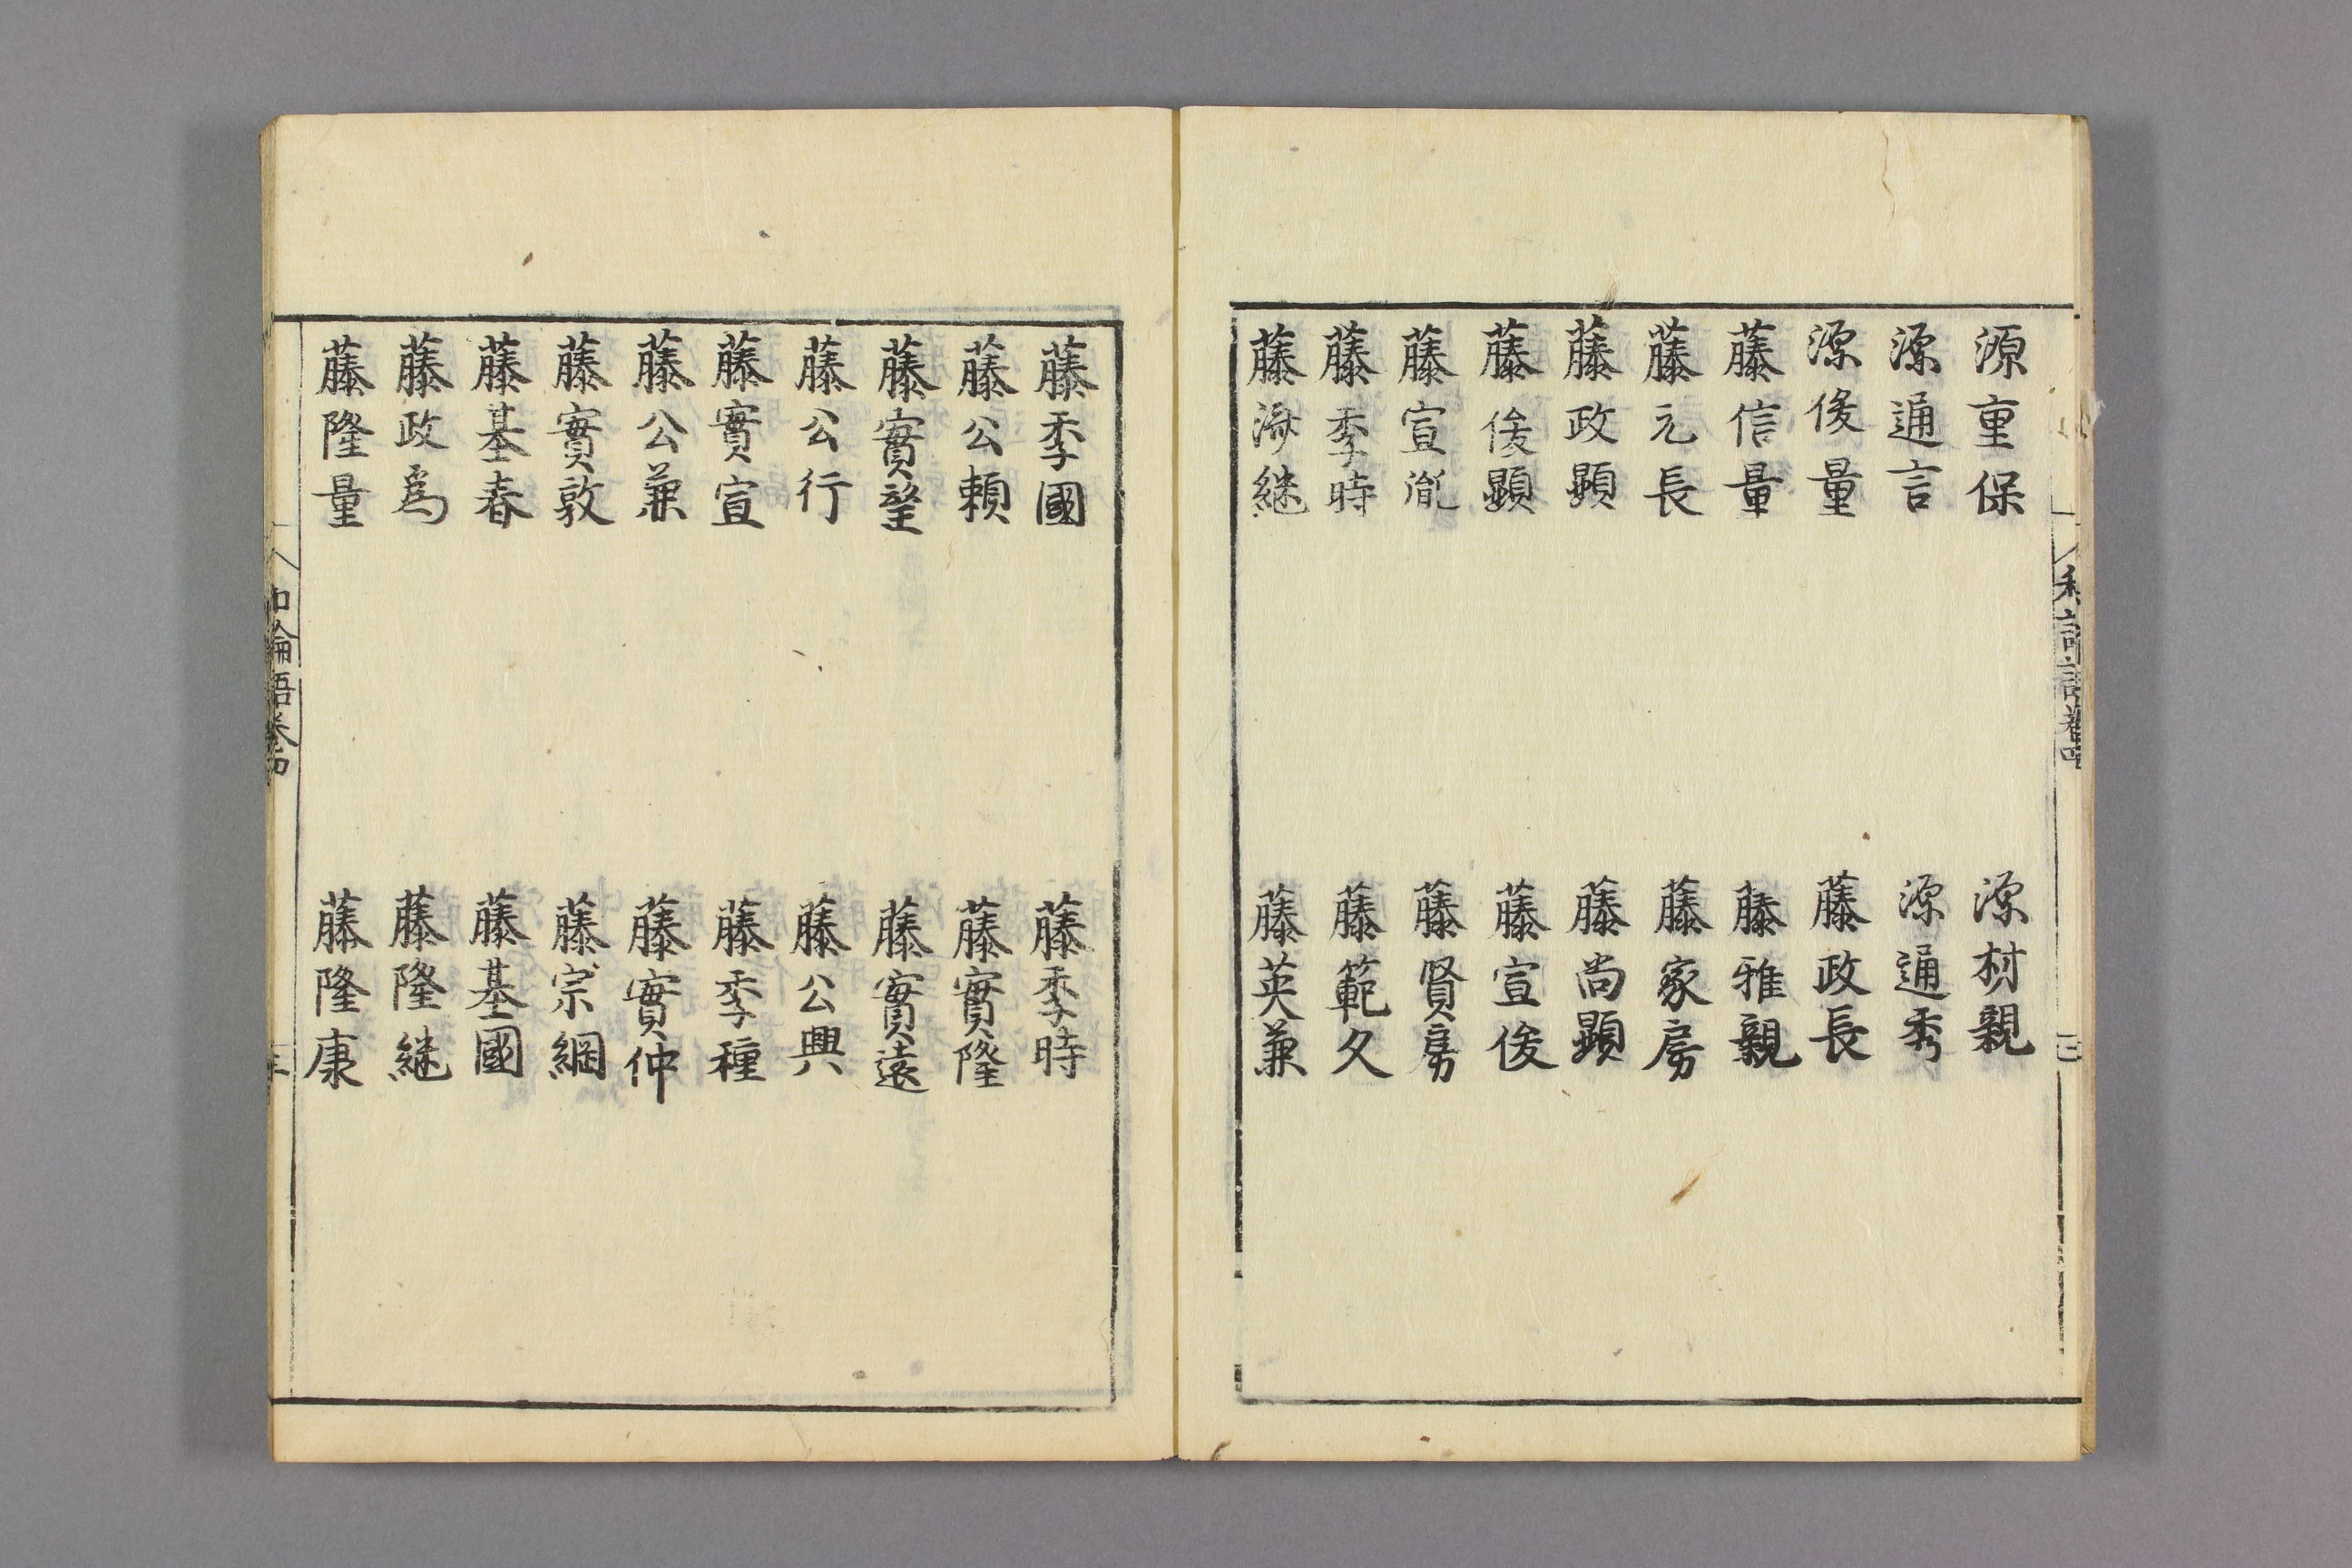 源重保
源材親
源通言
源通秀
源俊量
藤政長
藤信量
藤雅親
藤元長
藤家房
藤政顕
藤尚顕
藤俊顕
藤宣俊
藤宣胤
藤賢房
藤季時
藤範久
藤済継
藤英兼
藤季國
藤季時
藤公頼
藤實隆
藤實望
藤實遠
藤公行
藤公興
藤實宣
藤季種
藤公兼
藤實仲
藤實敦
藤宗綱
藤基春
藤基國
藤政爲
藤隆継
藤隆量
藤隆康